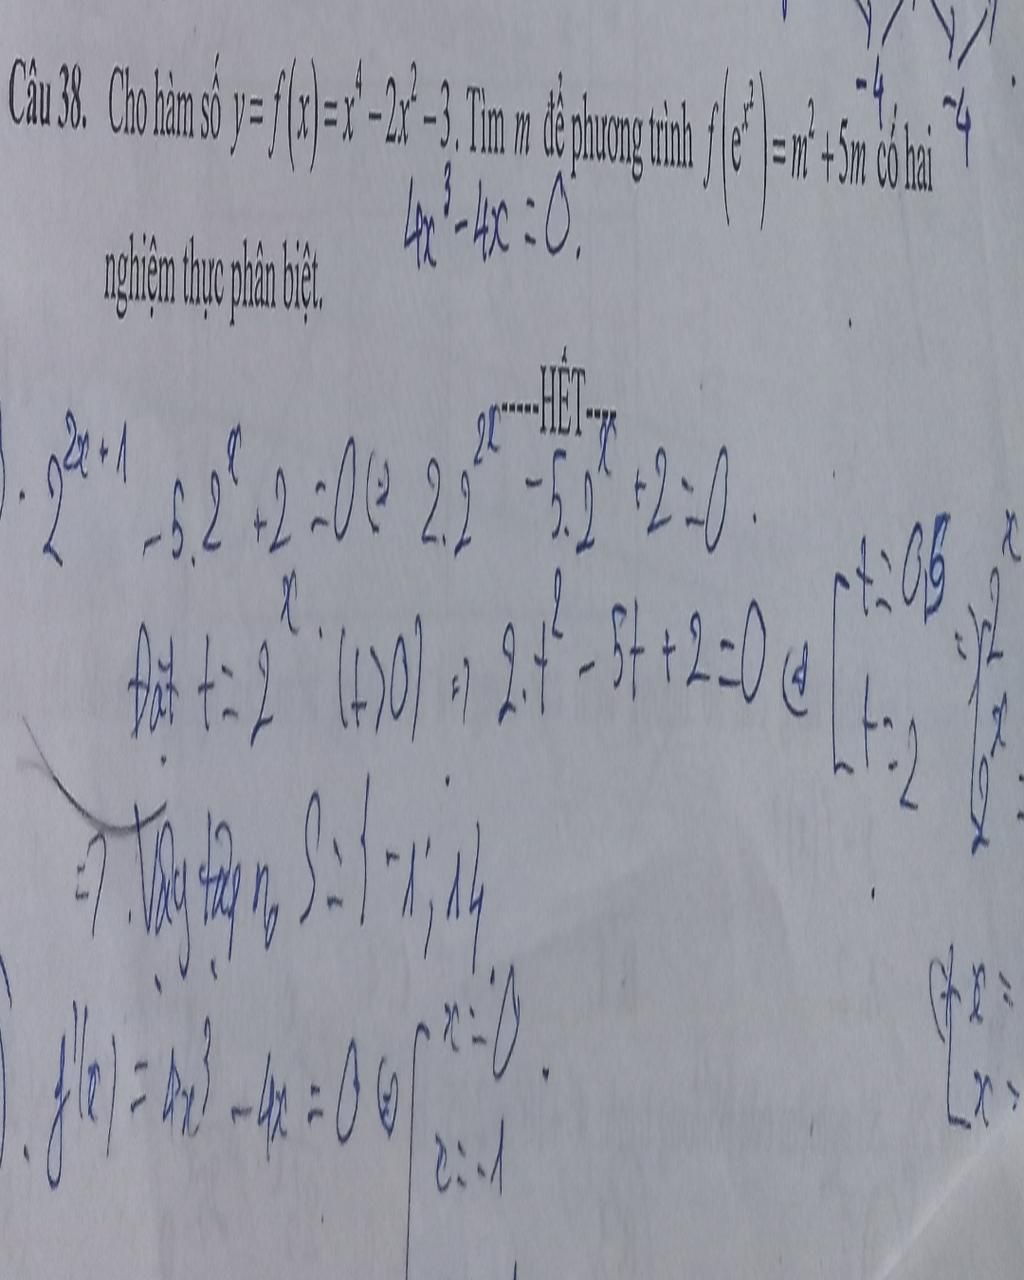 Câu 38. Cho hàm số y = f(x) = x⁴ − 2x² − 3. Tìm m để phương trình f(e^{x²}) = m² + 5m có hai
-4 -4
4x³ - 4x = 0.
nghiệm thực phân biệt.
-----HẾT----
2^{2x+1} - 5.2^x + 2 = 0 ⇔ 2.2^{2x} - 5.2^x + 2 = 0.
Đặt t = 2^x. (t>0) => 2.t² - 5t + 2 = 0 ⇔ [t = 0,5 => [2^x
t = 2 2^x =
=> Vậy tập n₀ S = {-1; 1}
[x =
x =
f'(x) = 4x³ - 4x = 0 ⇔ [x = 0
x = -1